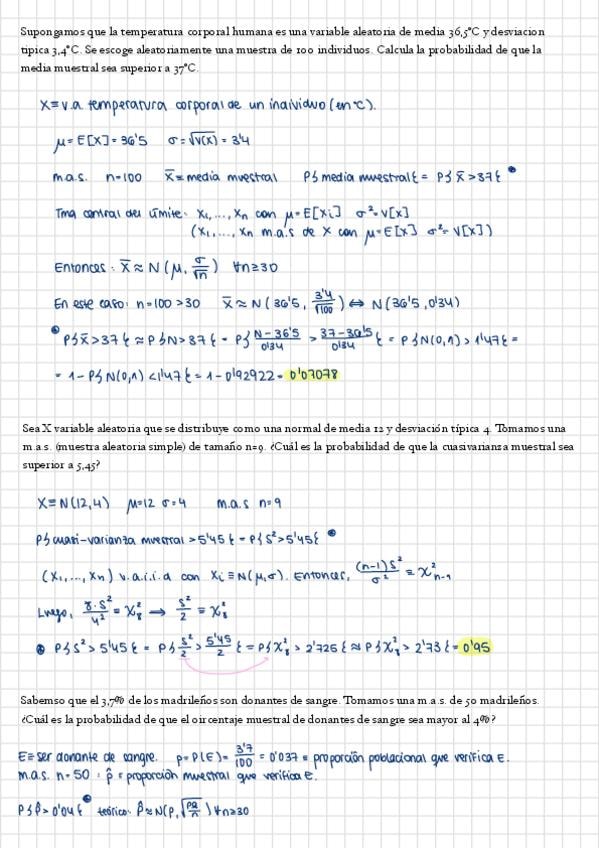 Supongamos que la temperatura corporal humana es una variable aleatoria de media 36,5°C y desviacion
tipica 3,4°C. Se escoge aleatoriamente una muestra de 100 individuos. Calcula la probabilidad de que la
media muestral sea superior a 37°C.
X≡v.a. temperatura corporal de un individuo (en °C).
μ = E[X] = 36'5 σ = √V(X) = 3'4
m.a.s. n=100 X̄ ≡ media muestral P{media muestral} = P{X̄ > 37}
Tma central del límite: X₁,...,Xn con μ=E[Xi] σ²=V[X]
(X₁,...,Xn m.a.s de X con μ=E[X] σ²=V[X])
Entonces: X̄ ≈ N(μ, σ/√n) ∀n≥30
En este caso: n=100 >30 X̄ ≈ N(36'5, 3'4/√100) ⇔ N(36'5, 0'34)
P{X̄>37} ≈ P{N>37} = P{(N-36'5)/0'34 > (37-36'5)/0'34} = P{N(0,1) > 1'47} =
= 1 - P{N(0,1) < 1'47} = 1 - 0'92922 = 0'07078
Sea X variable aleatoria que se distribuye como una normal de media 12 y desviación típica 4. Tomamos una
m.a.s. (muestra aleatoria simple) de tamaño n=9. ¿Cuál es la probabilidad de que la cuasivarianza muestral sea
superior a 5,45?
X≡N(12,4) μ=12 σ=4 m.a.s n=9
P{cuasi-varianza muestral > 5'45} = P{S² > 5'45}
(X₁,...,Xn) v.a.i.i.d con Xi ≡ N(μ,σ). Entonces, (n-1)S²/σ² ≡ χ²n-1
Luego, 8·S²/4² ≡ χ²8 → S²/2 ≡ χ²8
P{S² > 5'45} = P{S²/2 > 5'45/2} = P{χ²8 > 2'725} ≈ P{χ²8 > 2'73} = 0'95
Sabemso que el 3,7% de los madrileños son donantes de sangre. Tomamos una m.a.s. de 50 madrileños.
¿Cuál es la probabilidad de que el oircentaje muestral de donantes de sangre sea mayor al 4%?
E≡ser donante de sangre. p=P(E)= 3'7/100 = 0'037 ≡ proporción poblacional que verifica E.
m.a.s. n=50 : p̂ ≡ proporción muestral que verifica E.
P{p̂ > 0'04} teórico: p̂ ≈ N(p, √(pq/n)) ∀n≥30